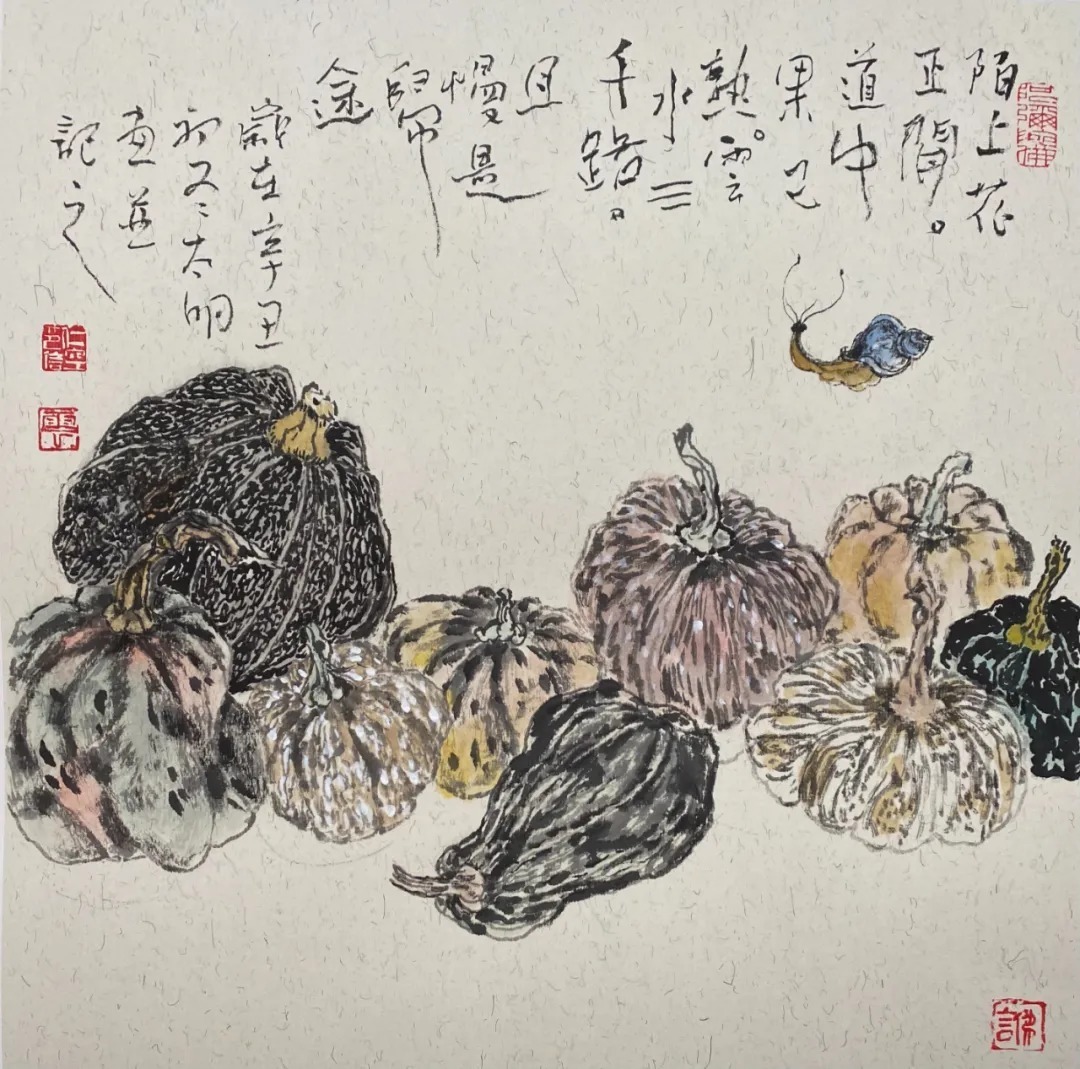 陌上花
正開。
道中
果已
熟。雲
水三
千路。
且
慢是
歸
途
歲在辛丑
初冬太明
畫並
記之
阿彌陀佛